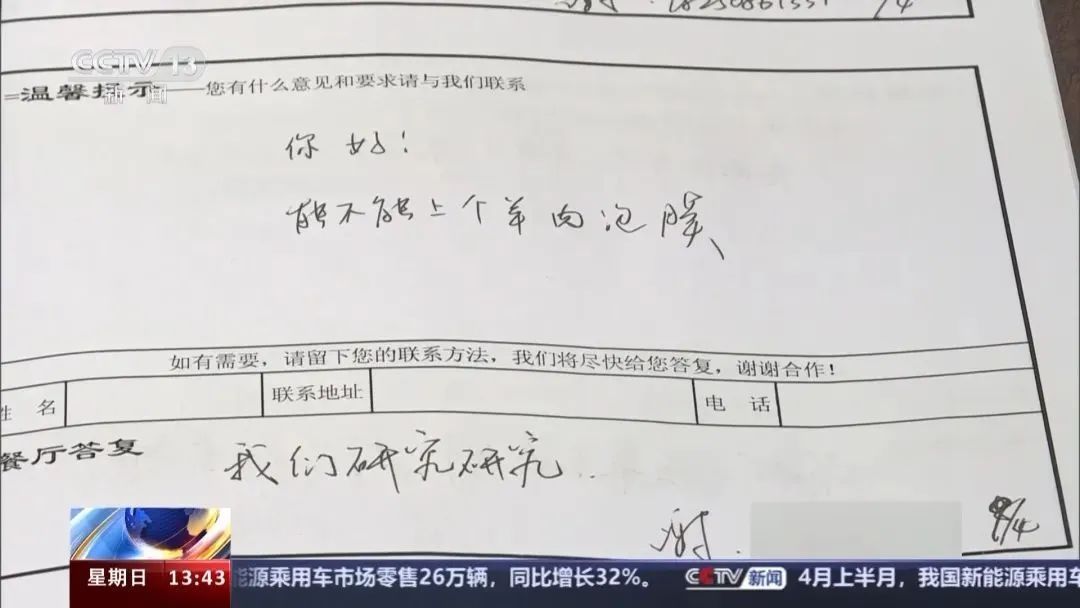 CCTV 13
新闻
温馨提示——您有什么意见和要求请与我们联系
你好!
能不能上个羊肉泡膜
如有需要,请留下您的联系方法,我们将尽快给您答复,谢谢合作!
姓 名
联系地址
电 话
餐厅答复
我们研究研究..
谢.
9/4
星期日 13:43
能源乘用车市场零售26万辆,同比增长32%。 CCTV 新闻 4月上半月,我国新能源乘用车